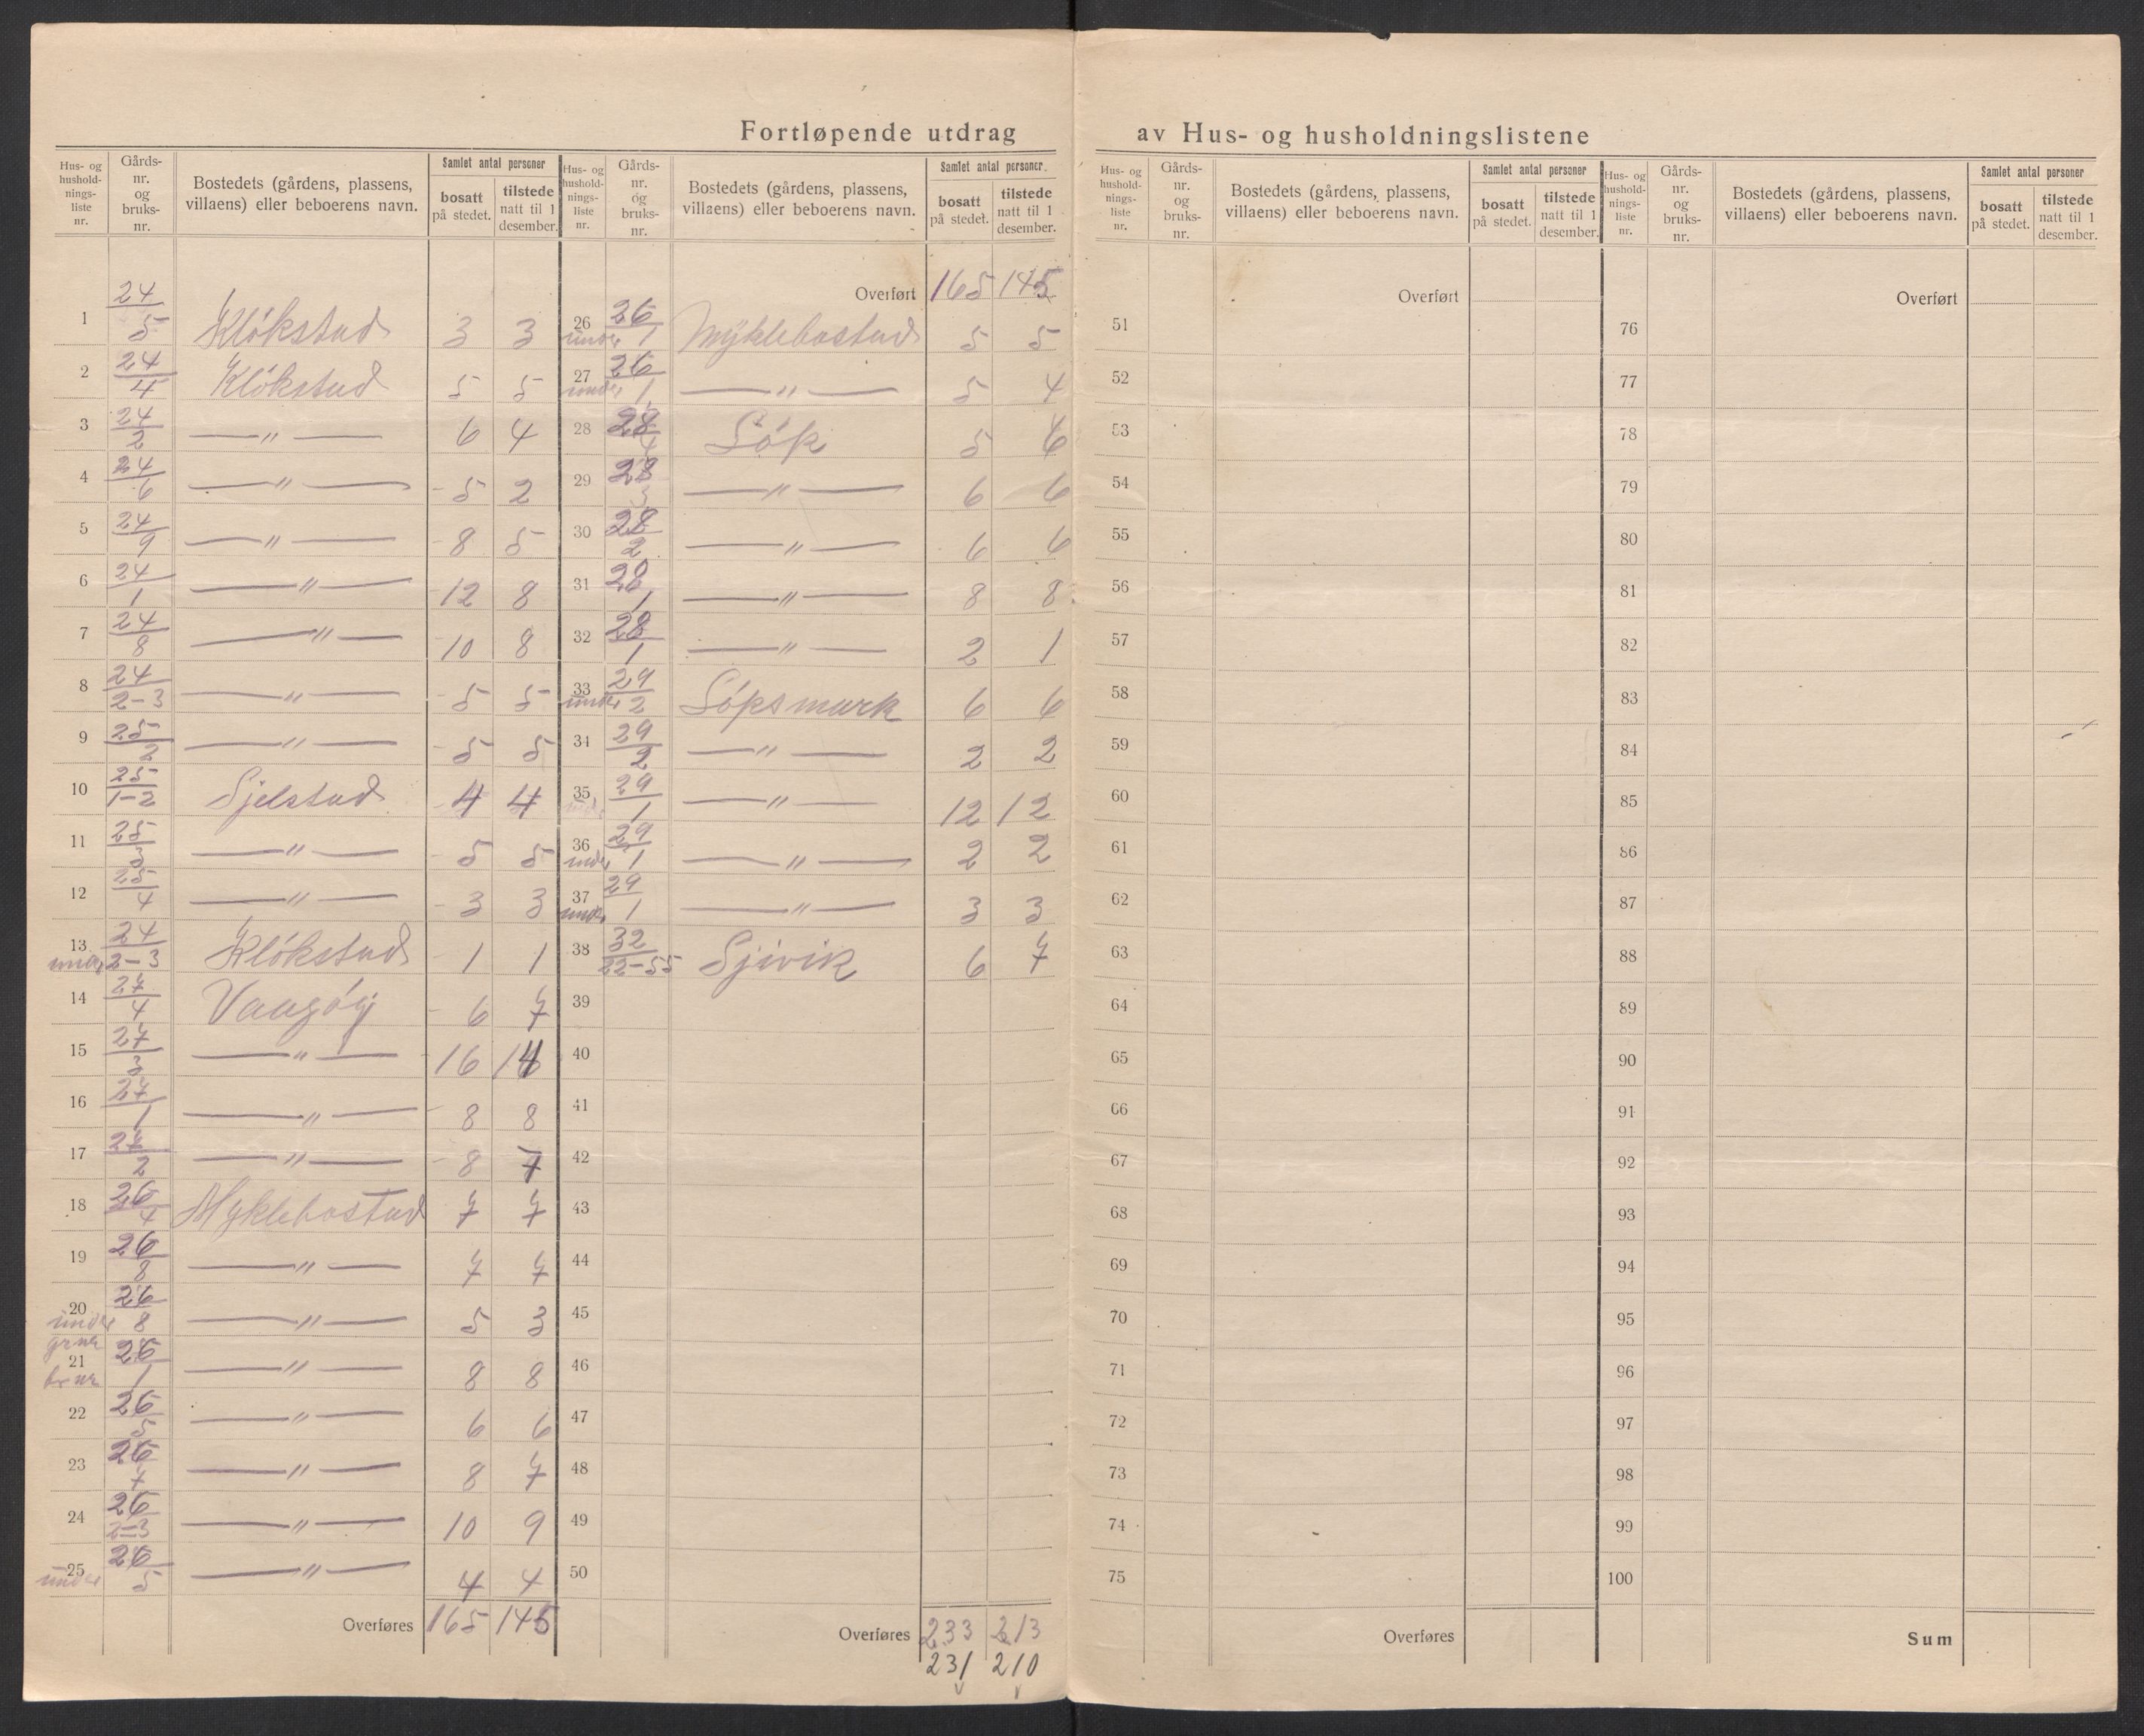 Fortløpende utdrag av Hus- og husholdningslistene
Hus- og hushold-nings-liste nr. | Gårds-nr. og bruks-nr. | Bostedets (gårdens, plassens, villaens) eller beboerens navn. | Samlet antal personer | bosatt på stedet. | tilstede natt til 1 desember.
1 24/5 Klökstad 3 3
2 24/4 Klökstad 5 5
3 24/2 —"— 6 4
4 24/6 —"— 5 2
5 24/9 —"— 8 5
6 24/1 —"— 12 8
7 24/8 —"— 10 8
8 24/2-3 —"— 5 5
9 25/2 —"— 5 5
10 25/1-2 Sjelstad 4 4
11 25/3 —"— 5 5
12 25/4 —"— 3 3
13 under 24/2-3 Klökstad 1 1
14 27/4 Vaagöy 6 7
15 27/3 —"— 16 14
16 27/1 —"— 8 8
17 27/2 —"— 8 7
18 26/4 Myklebostad 7 7
19 26/8 —"— 7 7
20 under 26/8 —"— 5 3
grnr
21 brnr 26/1 —"— 8 8
22 26/5 —"— 6 6
23 26/7 —"— 8 7
24 26/2-3 —"— 10 9
25 under 26/5 —"— 4 4
Overføres 165 145
Hus- og hushold-nings-liste nr. | Gårds-nr. og bruks-nr. | Bostedets (gårdens, plassens, villaens) eller beboerens navn. | Samlet antal personer. | bosatt på stedet. | tilstede natt til 1 desember.
Overført 165 145
26 under 26/1 Myklebostad 5 5
27 under 26/1 —"— 5 4
28 28/4 Löp 5 6
29 28/3 —"— 6 6
30 28/2 —"— 6 6
31 28/1 —"— 8 8
32 28/1 —"— 2 1
33 under 29/2 Löpsmark 6 6
34 29/2 —"— 2 2
35 29/1 —"— 12 12
36 under 29/1 —"— 2 2
37 under 29/1 —"— 3 3
38 32/22-55 Sjivik 6 7
39
40
41
42
43
44
45
46
47
48
49
50
Overføres 233 213
231 210
Hus- og hushold-nings-liste nr. | Gårds-nr. og bruks-nr. | Bostedets (gårdens, plassens, villaens) eller beboerens navn. | Samlet antal personer | bosatt på stedet. | tilstede natt til 1 desember.
Overført
51
52
53
54
55
56
57
58
59
60
61
62
63
64
65
66
67
68
69
70
71
72
73
74
75
Overføres
Hus- og hushold-nings-liste nr. | Gårds-nr. og bruks-nr. | Bostedets (gårdens, plassens, villaens) eller beboerens navn. | Samlet antal personer | bosatt på stedet. | tilstede natt til 1 desember.
Overført
76
77
78
79
80
81
82
83
84
85
86
87
88
89
90
91
92
93
94
95
96
97
98
99
100
Sum